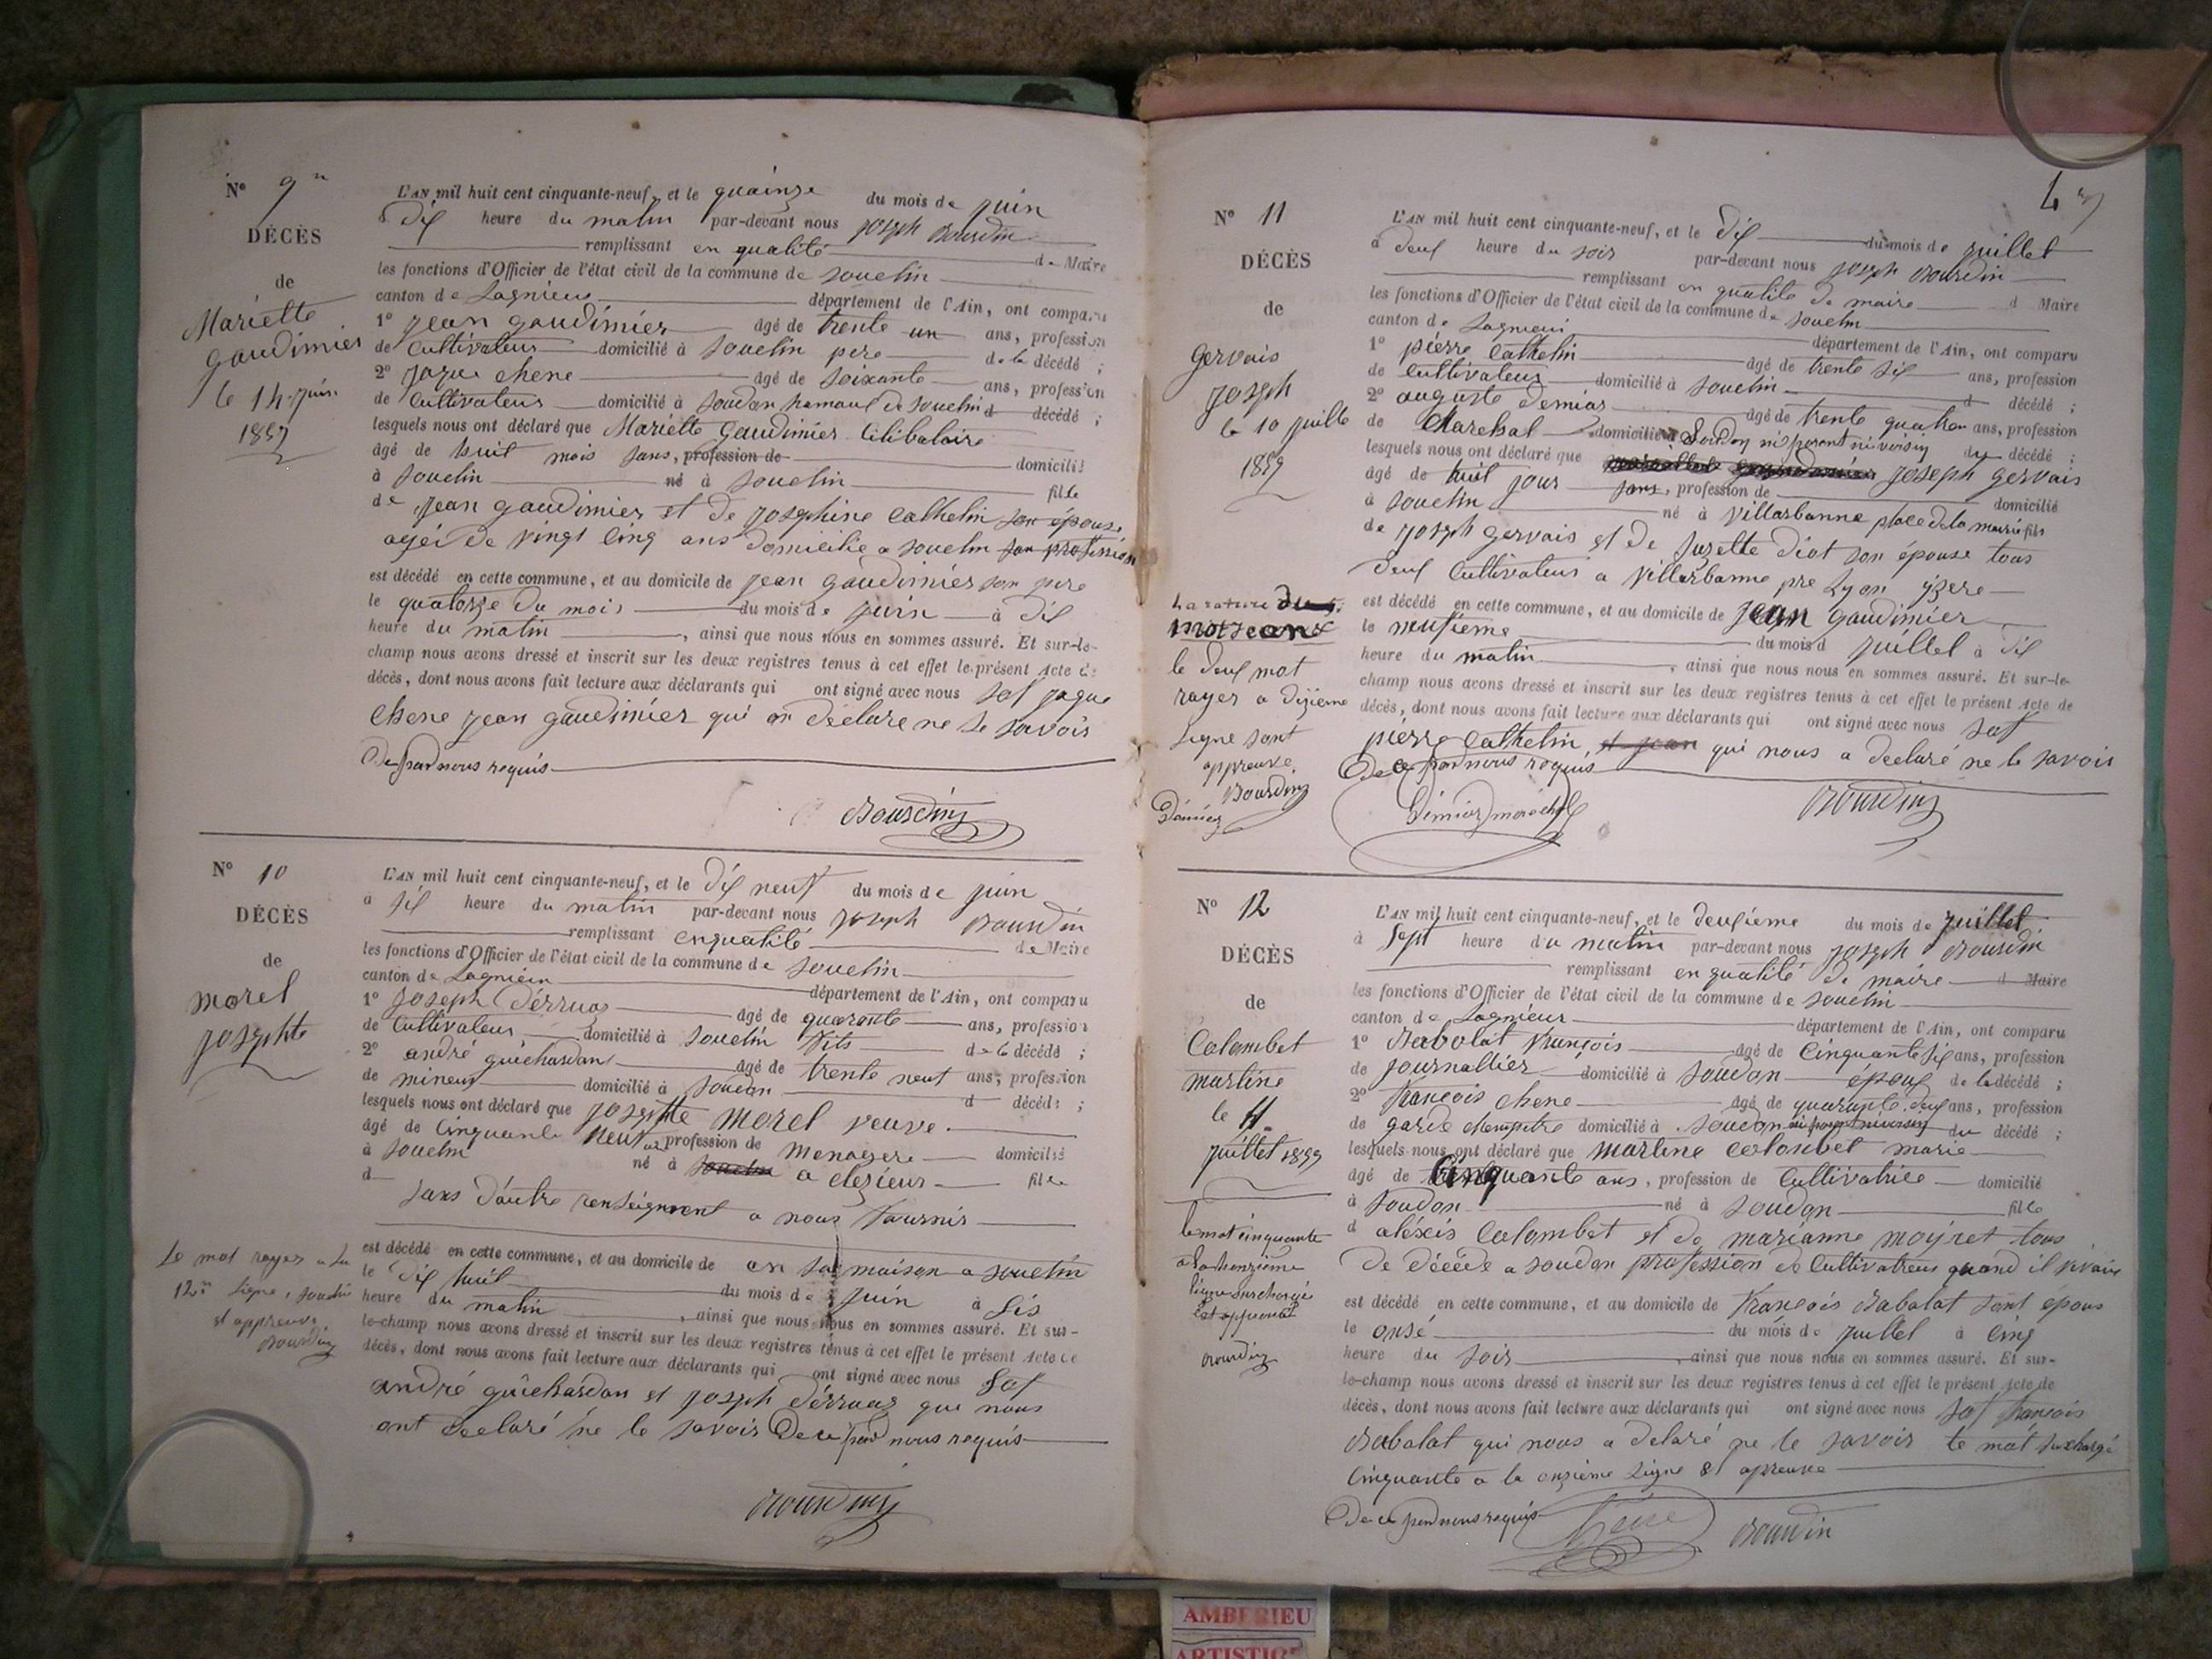 N° 9
DÉCÈS
de
Mariette
gaudimier
le 14 juin
1859
L'AN mil huit cent cinquante-neuf, et le quainze du mois de juin
à dix heure du matin par-devant nous joseph Bourdin
remplissant en qualité de Maire
les fonctions d'Officier de l'état civil de la commune de souclin
canton de Lagnieus département de l'Ain, ont comparu
1° jean gaudimier âgé de trente un ans, profession
de Cultivateur domicilié à souclin pere de la décédé ;
2° jaque chene âgé de soixante ans, profession
de Cultivateur domicilié à soudon hamaux de souclin d décédé ;
lesquels nous ont déclaré que Mariette gaudimier Cilibataire
âgé de huit mois sans, profession de domicilié
à souclin né à souclin fille
de jean gaudimier et de josephine Cathelin son épouse
agéi de vingt cinq ans domicilie a souclin san profession
est décédé en cette commune, et au domicile de jean gaudimier son pere
le quatorze du mois du mois de juin à dix
heure du matin, ainsi que nous nous en sommes assuré. Et sur-le-
champ nous avons dressé et inscrit sur les deux registres tenus à cet effet le présent Acte de
décès, dont nous avons fait lecture aux déclarants qui ont signé avec nous sof jaque
chene jean gaudimier qui on déclare ne le savoir
De par nous requis
Bourdin
N° 10
DÉCÈS
de
morel
josephte
L'AN mil huit cent cinquante-neuf, et le dix neuf du mois de juin
à six heure du matin par-devant nous joseph Bourdin
remplissant enqualité de Maire
les fonctions d'Officier de l'état civil de la commune de souclin
canton de Lagnieu département de l'Ain, ont comparu
1° joseph Dérruaz âgé de quarante ans, profession
de Cultivateur domicilié à souclin fits de la décédé ;
2° andré guichardan âgé de trente neuf ans, profession
de mineur domicilié à soudon d décédé ;
lesquels nous ont déclaré que josephte morel veuve
âgé de Cinquante neuf ans profession de menagere domicilié
à souclin né à souclin a clezieus fille
d sans d'autre renseignment a nous fournir
est décédé en cette commune, et au domicile de en sa maison a souclin
le dix huit du mois de juin à sis
heure du matin, ainsi que nous nous en sommes assuré. Et sur-
le-champ nous avons dressé et inscrit sur les deux registres tenus à cet effet le présent Acte de
décès, dont nous avons fait lecture aux déclarants qui ont signé avec nous sof
andré guichardan et joseph dérruaz que nous
ont declaré ne le savoir De ce par nous requis
Le mot rayer a la
12e ligne, souclin
et appreuve
Bourdin
Bourdin
N° 11
DÉCÈS
de
gervais
joseph
le 10 juille
1859
L'AN mil huit cent cinquante-neuf, et le dix du mois de juillet
à deux heure du soir par-devant nous joseph Bourdin
remplissant en qualité de maire d Maire
les fonctions d'Officier de l'état civil de la commune de souclin
canton de Lagnieu département de l'Ain, ont comparu
1° pierre Cathelin âgé de trente six ans, profession
de Cultivateur domicilié à souclin d décédé ;
2° auguste demias âgé de trente quatre ans, profession
de Marechal domicilié à Soudon ni parent ni voisin du décédé ;
lesquels nous ont déclaré que joseph gervais
âgé de huit jour sans, profession de domicilié
à souclin né à villarbanne place de la mairie fils
de joseph gervais et de suzette diot son épouse tous
deux Cultivateurs a villarbanne pre Lyon yzere
est décédé en cette commune, et au domicile de jean gaudimier
le neufieme du mois d juillet à dix
heure du matin, ainsi que nous nous en sommes assuré. Et sur-le-
champ nous avons dressé et inscrit sur les deux registres tenus à cet effet le présent Acte de
décès, dont nous avons fait lecture aux déclarants qui ont signé avec nous sof
pierre Cathelin, et jean qui nous a declaré ne le savoir
De ce par nous requis
le deux mot
rayer a dizieme
Ligne sont
appreuve
Bourdin
Demias
Demias marechal
Bourdin
N° 12
DÉCÈS
de
Colombet
martine
le 11
juillet 1859
L'AN mil huit cent cinquante-neuf, et le deuxieme du mois de juillet
à sept heure du matin par-devant nous joseph Bourdin
remplissant en qualité de maire d Maire
les fonctions d'Officier de l'état civil de la commune de souclin
canton de Lagnieus département de l'Ain, ont comparu
1° Babolat François âgé de Cinquante six ans, profession
de journallier domicilié à soudon époux de la décédé ;
2° François chene âgé de quarante deux ans, profession
de garde champetre domicilié à soudon ni parent ni voisin du décédé ;
lesquels nous ont déclaré que martine colombet marie
âgé de Cinquante ans, profession de Cultivatrice domicilié
à soudon né à soudon fille
d aléxis Colombet et de marianne moyret tous
de décédé a soudon profession de Cultivatreur quand il vivais
est décédé en cette commune, et au domicile de François Babolat sont epous
le onsé du mois de juillet à cinq
heure du soir, ainsi que nous nous en sommes assuré. Et sur-
le-champ nous avons dressé et inscrit sur les deux registres tenus à cet effet le présent Acte de
décès, dont nous avons fait lecture aux déclarants qui ont signé avec nous sof francois
Babolat qui nous a delaré ne le savoir le mot surchargé
Cinquante a la onzième Ligne et apreuve
De ce par nous requis
le mot cinquante
a la honzième
ligne surchargé
est approuvé
Bourdin
Chene
Bourdin
AMBERIEU
ARTISTIQUE